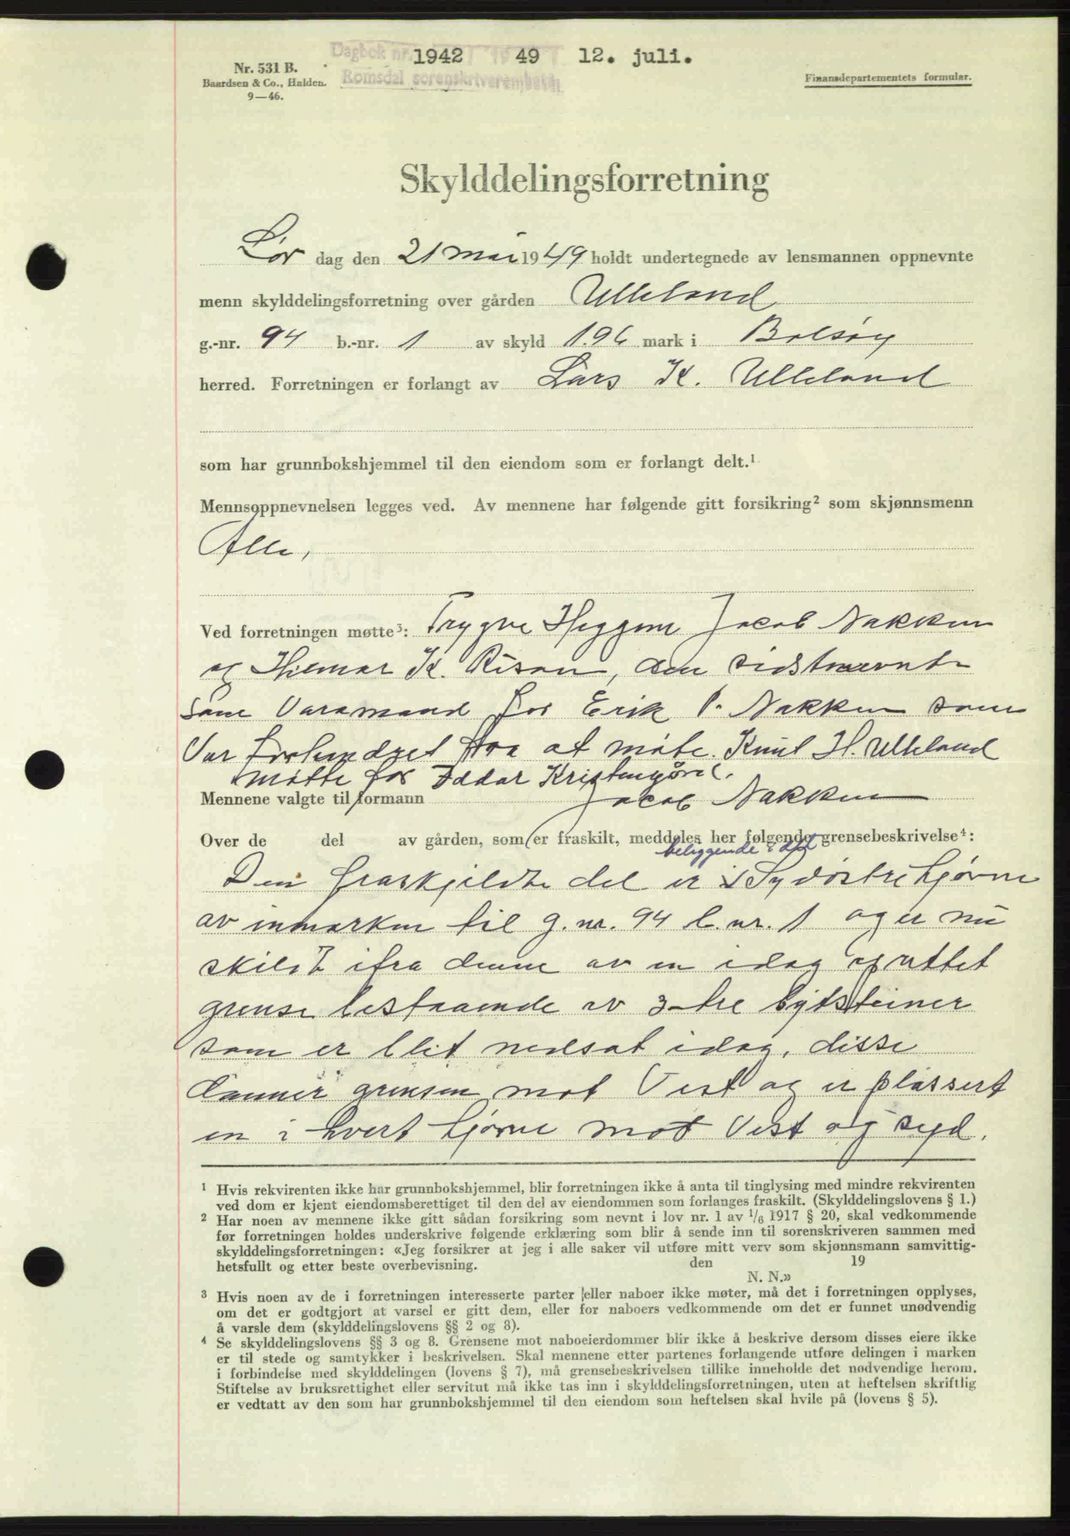 Dagbok nr. 1942 1949 12. juli.
Romsdal sorenskriverembete
Nr. 531 B.
Baardsen & Co., Halden.
9—46.
Finansdepartementets formular.
Skylddelingsforretning
Lør dag den 21 mai 1949 holdt undertegnede av lensmannen oppnevnte
menn skylddelingsforretning over gården Ulleland
g.-nr. 94 b.-nr. 1 av skyld 1.96 mark i Bolsøy
herred. Forretningen er forlangt av Lars K. Ulleland
som har grunnbokshjemmel til den eiendom som er forlangt delt.¹
Mennsoppnevnelsen legges ved. Av mennene har følgende gitt forsikring² som skjønnsmenn
Alle,
Ved forretningen møtte³: Trygve Heggem Jacob Nakken
og Hilmar K. Risan, den sidstnævnte
som Varamand for Erik P. Nakken som
Var forhindret fra at møte. Knut H. Ulleland
møtte for Oddar
Mennene valgte til formann Jacob Nakken
Over de del av gården, som er fraskilt, meddeles her følgende grensebeskrivelse⁴:
beliggende i det
Den fraskjildte del er i Sydøstre hjørne
av inmarken til g. nr. 94 b. nr. 1 og er nu
skildt ifra denne av en idag oprettet
grense bestaaende av 3-tre bytesteiner
som er blit nedsat idag, disse
danner grensen mot Vest og er plassert
en i hvert hjørne mot Vest og syd.
¹ Hvis rekvirenten ikke har grunnbokshjemmel, blir forretningen ikke å anta til tinglysing med mindre rekvirenten
ved dom er kjent eiendomsberettiget til den del av eiendommen som forlanges fraskilt. (Skylddelingslovens § 1.)
² Har noen av mennene ikke gitt sådan forsikring som nevnt i lov nr. 1 av ¹/₆ 1917 § 20, skal vedkommende
før forretningen holdes underskrive følgende erklæring som blir å sende inn til sorenskriveren sammen med
skylddelingsforretningen: «Jeg forsikrer at jeg i alle saker vil utføre mitt verv som skjønnsmann samvittig-
hetsfullt og etter beste overbevisning. den 19
N. N.»
³ Hvis noen av de i forretningen interesserte parter eller naboer ikke møter, må det i forretningen opplyses,
om det er godtgjort at varsel er gitt dem, eller for naboers vedkommende om det er funnet unødvendig
å varsle dem (skylddelingslovens §§ 2 og 3).
⁴ Se skylddelingslovens §§ 3 og 8. Grensene mot naboeierdommer blir ikke å beskrive dersom disses eiere ikke
er til stede og samtykker i beskrivelsen. Skal mennene etter partenes forlangende utføre delingen i marken
i forbindelse med skylddelingen (lovens § 7), må grensebeskrivelsen tillike inneholde det nødvendige herom.
Stiftelse av bruksrettighet eller servitut må ikke tas inn i skylddelingsforretningen, uten at heftelsen skriftlig
er vedtatt av den som har grunnbokshjemmel til den eiendom som heftelsen skal hvile på (lovens § 5).